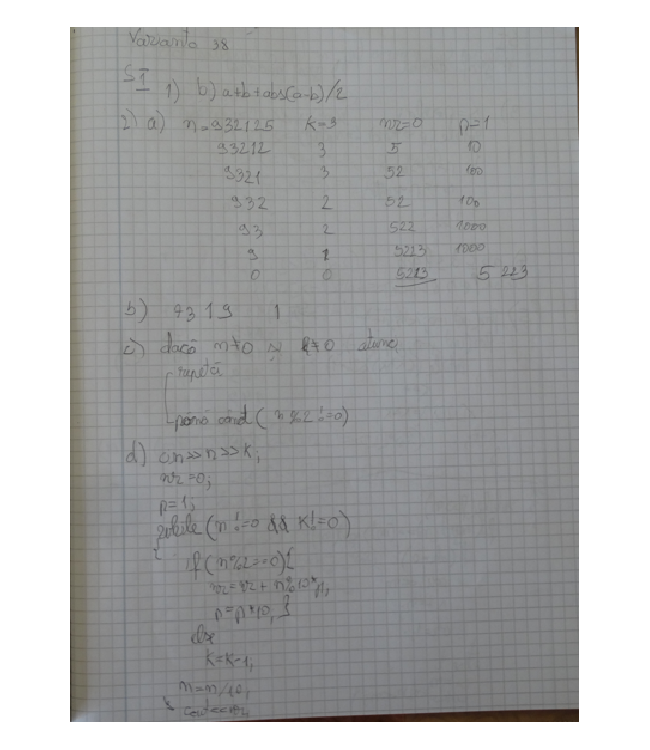 Varianta 38
SI
1) b) a+b+abs(a-b)/2
2) a) n=932125 k=3 nr=0 p=1
93212 3 5 10
9321 3 52 100
932 2 52 100
93 2 522 1000
9 1 5223 1000
0 0 5223 5 223
b) 7319 1
c) dacă n≠0 și k≠0 atunci
repetă
până când (n%2!=0)
d) cin>>n>>k;
nr=0;
p=1;
while(n!=0 && k!=0)
{
if(n%2==0){
nr=nr+n%10*p;
p=p*10; }
else
k=k-1;
n=n/10;
}